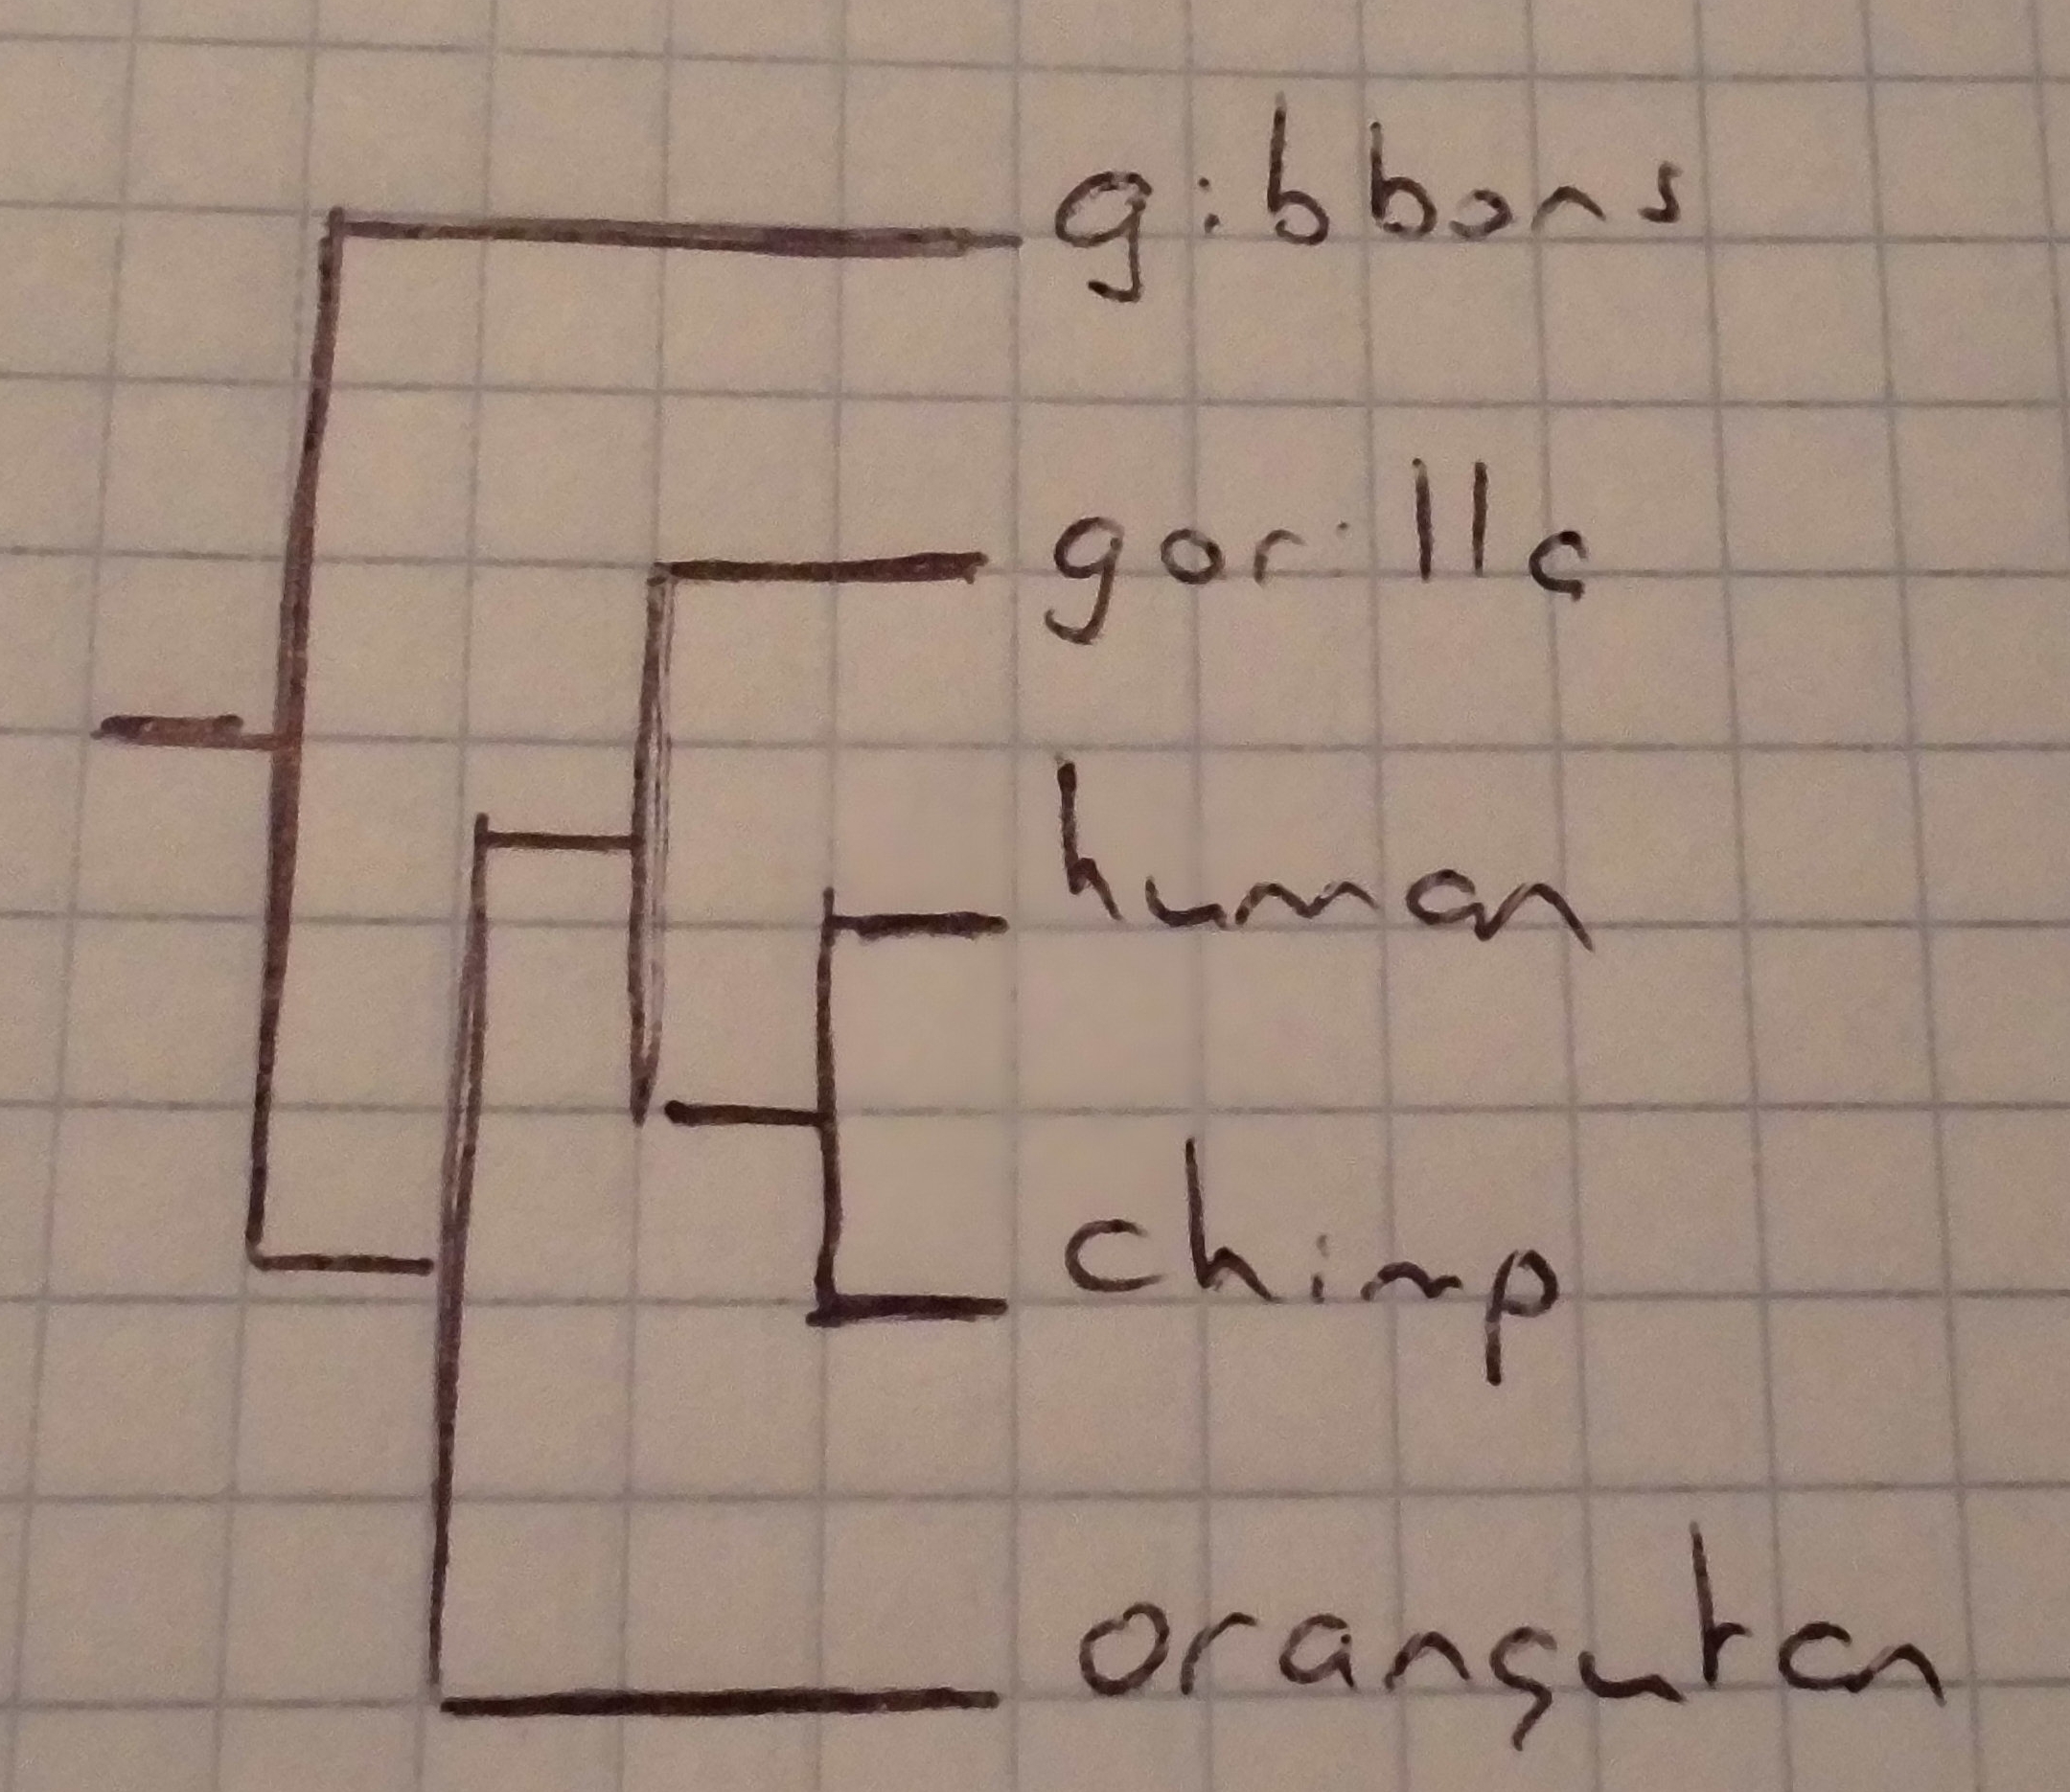 gibbons
gorilla
human
chimp
orangutan